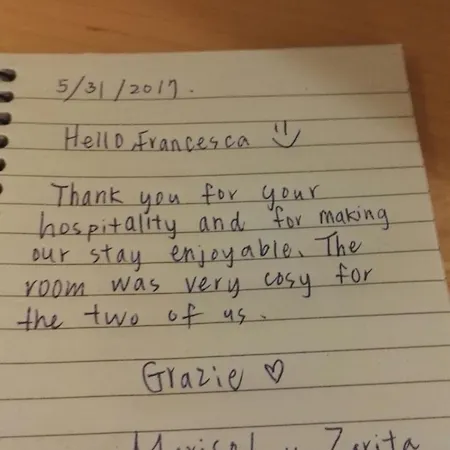 5/31/2017.
Hello Francesca
Thank you for your
hospitality and for making
our stay enjoyable. The
room was very cosy for
the two of us.
Grazie ♡